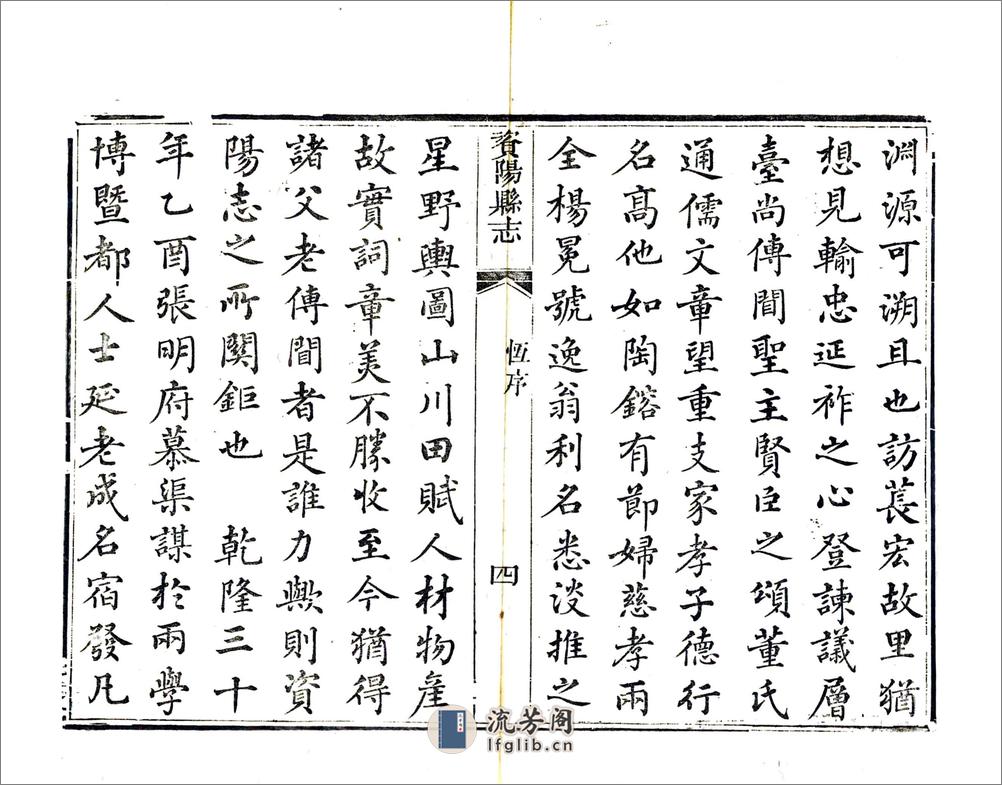 淵源可溯且也訪萇宏故里猶
想見輸忠延祚之心登諫議層
臺尚傳聞聖主賢臣之頌董氏
通儒文章望重支家孝子德行
名髙他如陶鎔有節婦慈孝兩
全楊冕號逸翁利名悉淡推之
資陽縣志
恆序
四
星野輿圖山川田賦人材物產
故實詞章美不勝收至今猶得
諸父老傳聞者是誰力歟則資
陽志之所關鉅也 乾隆三十
年乙酉張明府慕渠謀於兩學
博暨都人士延老成名宿發凡
流芳阁
lfglib.cn